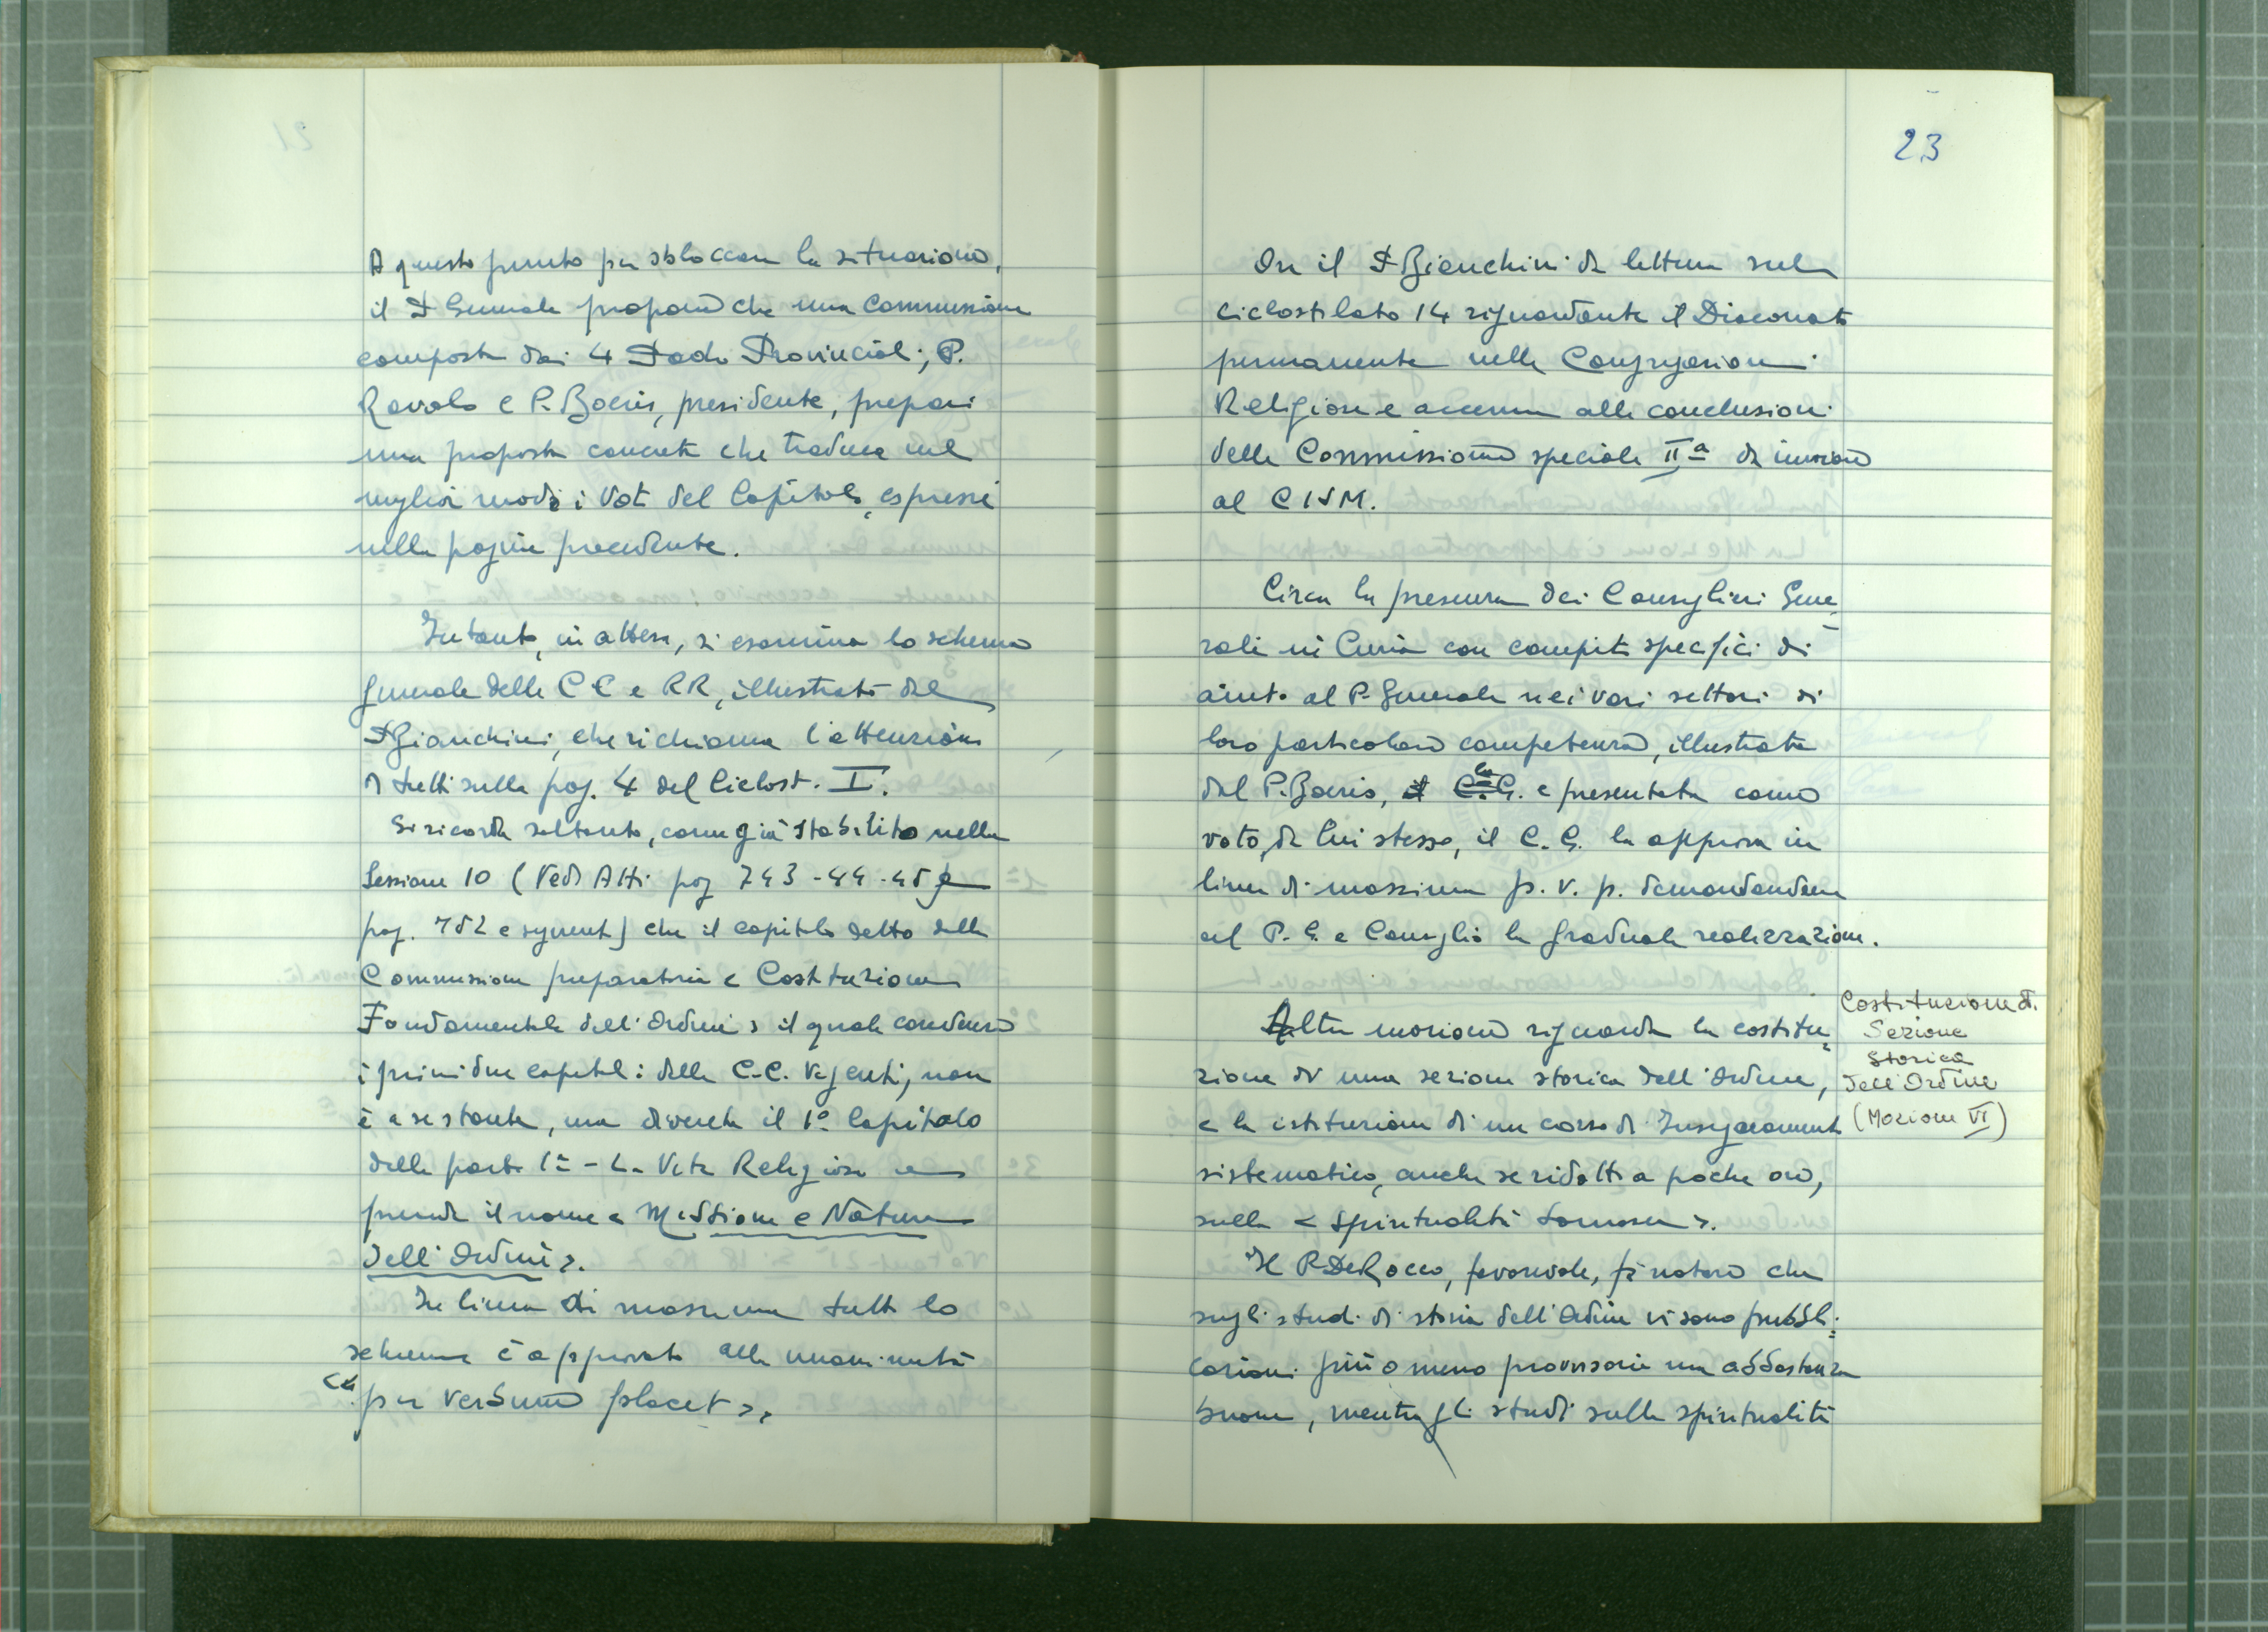 A questo punto per sbloccare la situazione,
il P Generale propone che una Commissione
composta dai 4 Padri Provinciali, P.
Ravolo e P. Boeris, presidente, prepari
una proposta concreta che traduca nel
miglior modo i Voti del Capitolo, espressi
nella pagina precedente.
Intanto, in attesa, si esamina lo schema
generale delle CC e RR, illustrato dal
P Bianchini, che richiama l'attenzione
di tutti sulla pag. 4 del Ciclost. I.
Si ricorda soltanto, come già stabilito nella
Sessione 10 (Vedi Atti pag 743-44-45 e
pag. 752 e seguenti) che il capitolo detto dalla
Commissione preparatoria < Costituzione
Fondamentale dell'Ordine > il quale condensa
i primi due capitoli delle C.C. Vigenti, non
è a se stante, ma diventa il 1º Capitolo
della parte 1ª - La Vita Religiosa e
prende il nome < Missione e Natura
dell'Ordine >.
In linea di massima tutto lo
schema è approvato alla unanimità
<< per verbum placet >>
23
Ora il P Bianchini dà lettura sul
ciclostilato 14 riguardante il Diaconato
permanente nelle Congregazioni
Religiose e accenna alle conclusioni
della Commissione speciale IIª da inviare
al CISM.
Circa la presenza dei Consiglieri Gene=
rali in Curia con compiti specifici di
aiuto al P. Generale nei vari settori di
loro particolare competenza, illustrata
dal P. Boeris, il C.G. e presentata come
voto, da lui stesso, il C.G. la approva in
linea di massima p. v. p. demandandone
al P. G. e Consiglio la graduale realizzazione.
Altra mozione riguarda la costitu=
zione di una sezione storica dell'Ordine,
e la istituzione di un corso di Insegnamento
sistematico, anche se ridotto a poche ore,
sulla < Spiritualità Somasca >.
Il P. De Rocco, favorevole, fa notare che
sugli studi di storia dell'Ordine vi sono pubbli=
cazioni più o meno provvisorie ma abbastanza
buone, mentre gli studi sulla spiritualità
Costituzione di
Sezione
Storica
dell'Ordine
(Mozione VI)